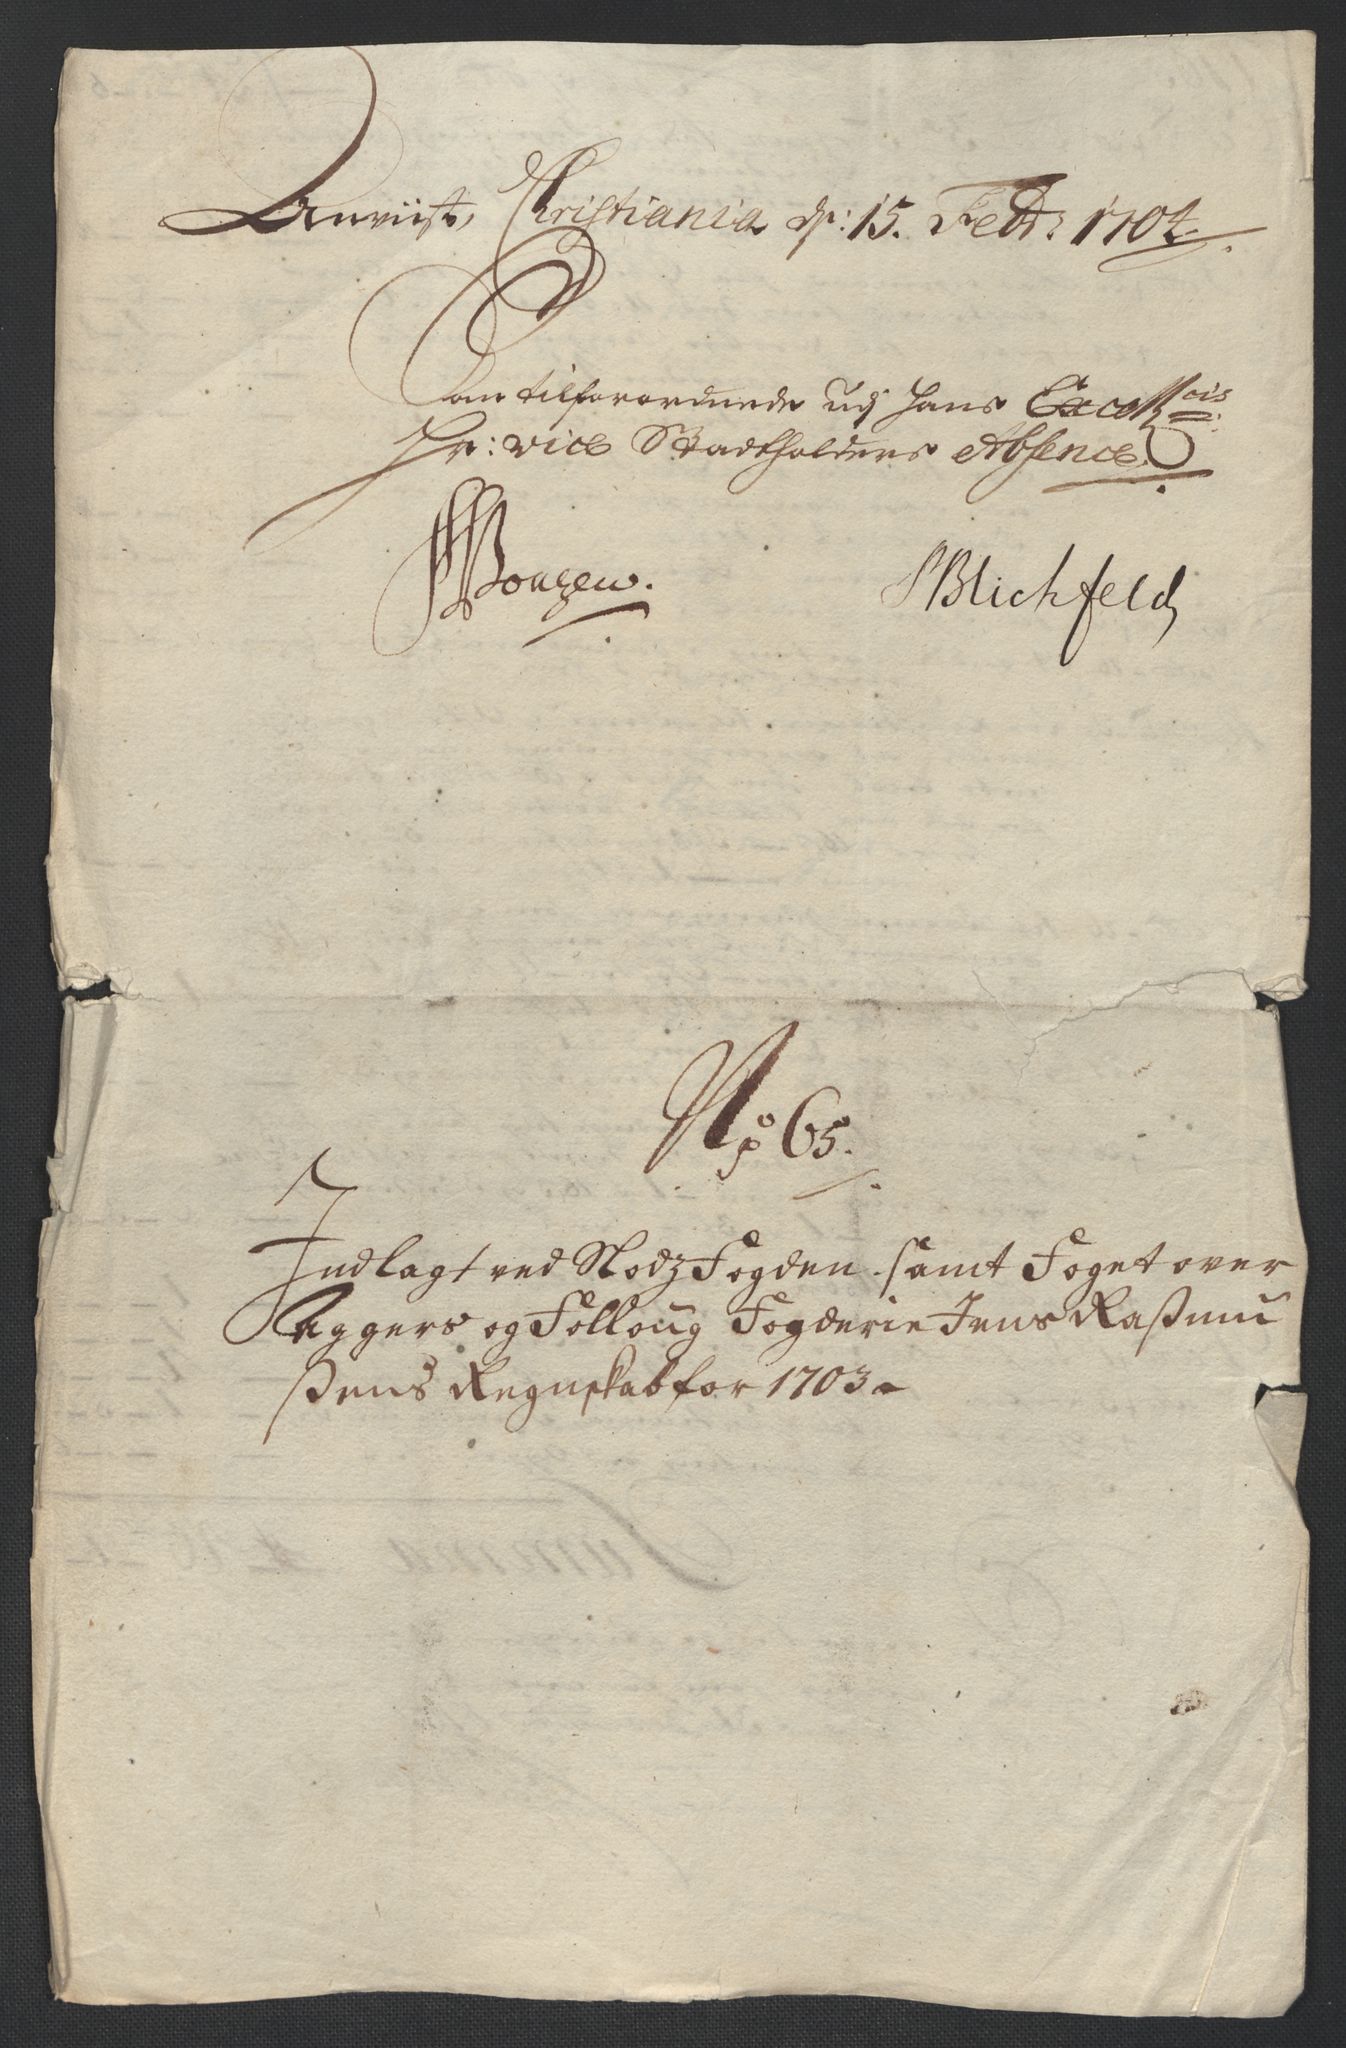 Anviist, Christiania d: 15. Febr: 1704.
tilforordnede udj Hans Excellcis
Hr: vice Stadtholders Absence.
SBlichfeld
No 65.
Indlagt ved Slodz Fogden samt Foget over
Aggers og Folloug Fogderie Jens Raßmu
ßens Regnskab for 1703.